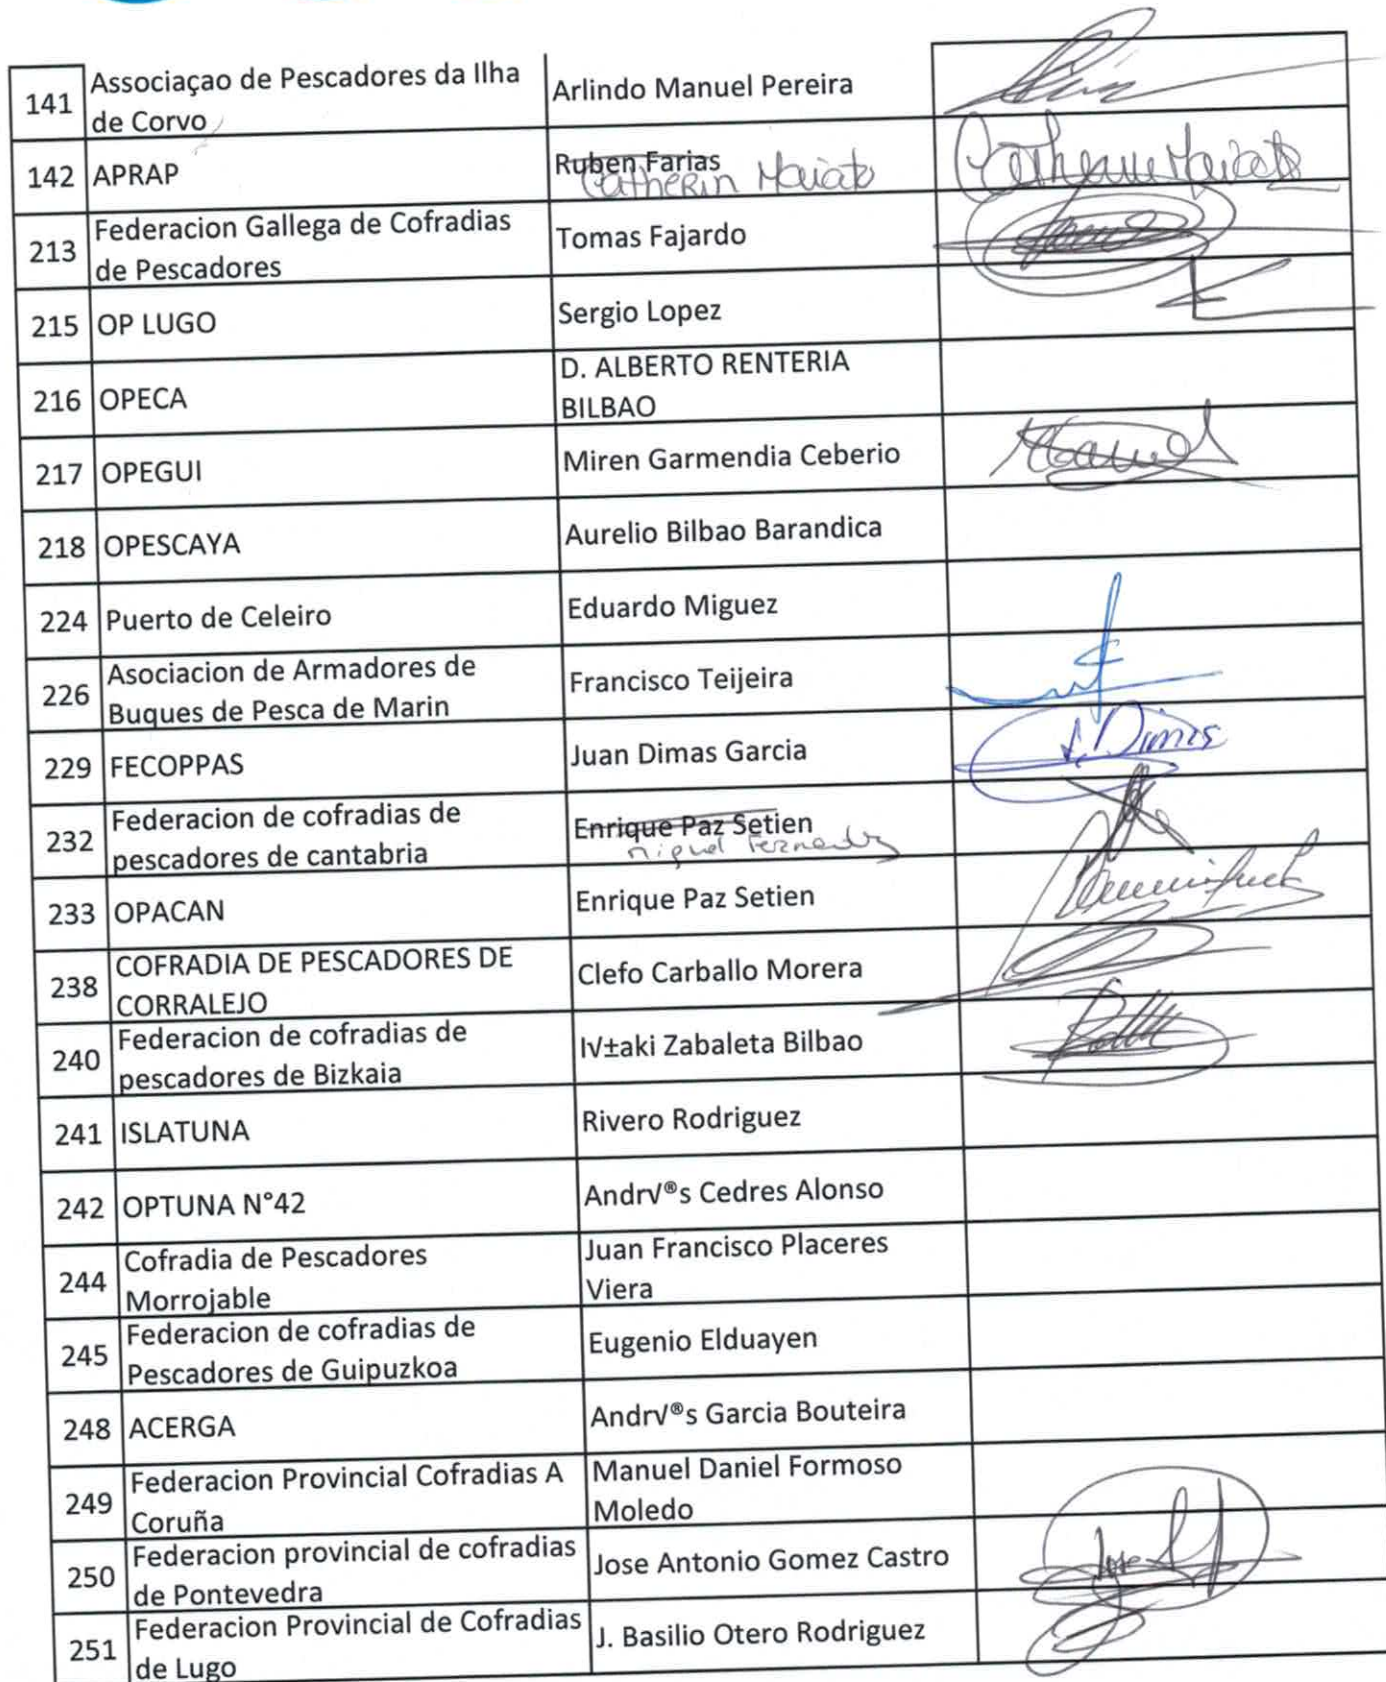 141 Associaçao de Pescadores da Ilha
de Corvo
Arlindo Manuel Pereira
142 APRAP
Ruben Farias
Catherin Maiato
Catherin Maiato
213 Federacion Gallega de Cofradias
de Pescadores
Tomas Fajardo
215 OP LUGO
Sergio Lopez
216 OPECA
D. ALBERTO RENTERIA
BILBAO
217 OPEGUI
Miren Garmendia Ceberio
218 OPESCAYA
Aurelio Bilbao Barandica
224 Puerto de Celeiro
Eduardo Miguez
226 Asociacion de Armadores de
Buques de Pesca de Marin
Francisco Teijeira
229 FECOPPAS
Juan Dimas Garcia
Dimas
232 Federacion de cofradias de
pescadores de cantabria
Enrique Paz Setien
Miguel Fernandez
233 OPACAN
Enrique Paz Setien
238 COFRADIA DE PESCADORES DE
CORRALEJO
Clefo Carballo Morera
240 Federacion de cofradias de
pescadores de Bizkaia
I√±aki Zabaleta Bilbao
241 ISLATUNA
Rivero Rodriguez
242 OPTUNA N°42
Andr√®s Cedres Alonso
244 Cofradia de Pescadores
Morrojable
Juan Francisco Placeres
Viera
245 Federacion de cofradias de
Pescadores de Guipuzkoa
Eugenio Elduayen
248 ACERGA
Andr√®s Garcia Bouteira
249 Federacion Provincial Cofradias A
Coruña
Manuel Daniel Formoso
Moledo
250 Federacion provincial de cofradias
de Pontevedra
Jose Antonio Gomez Castro
Jose
251 Federacion Provincial de Cofradias
de Lugo
J. Basilio Otero Rodriguez